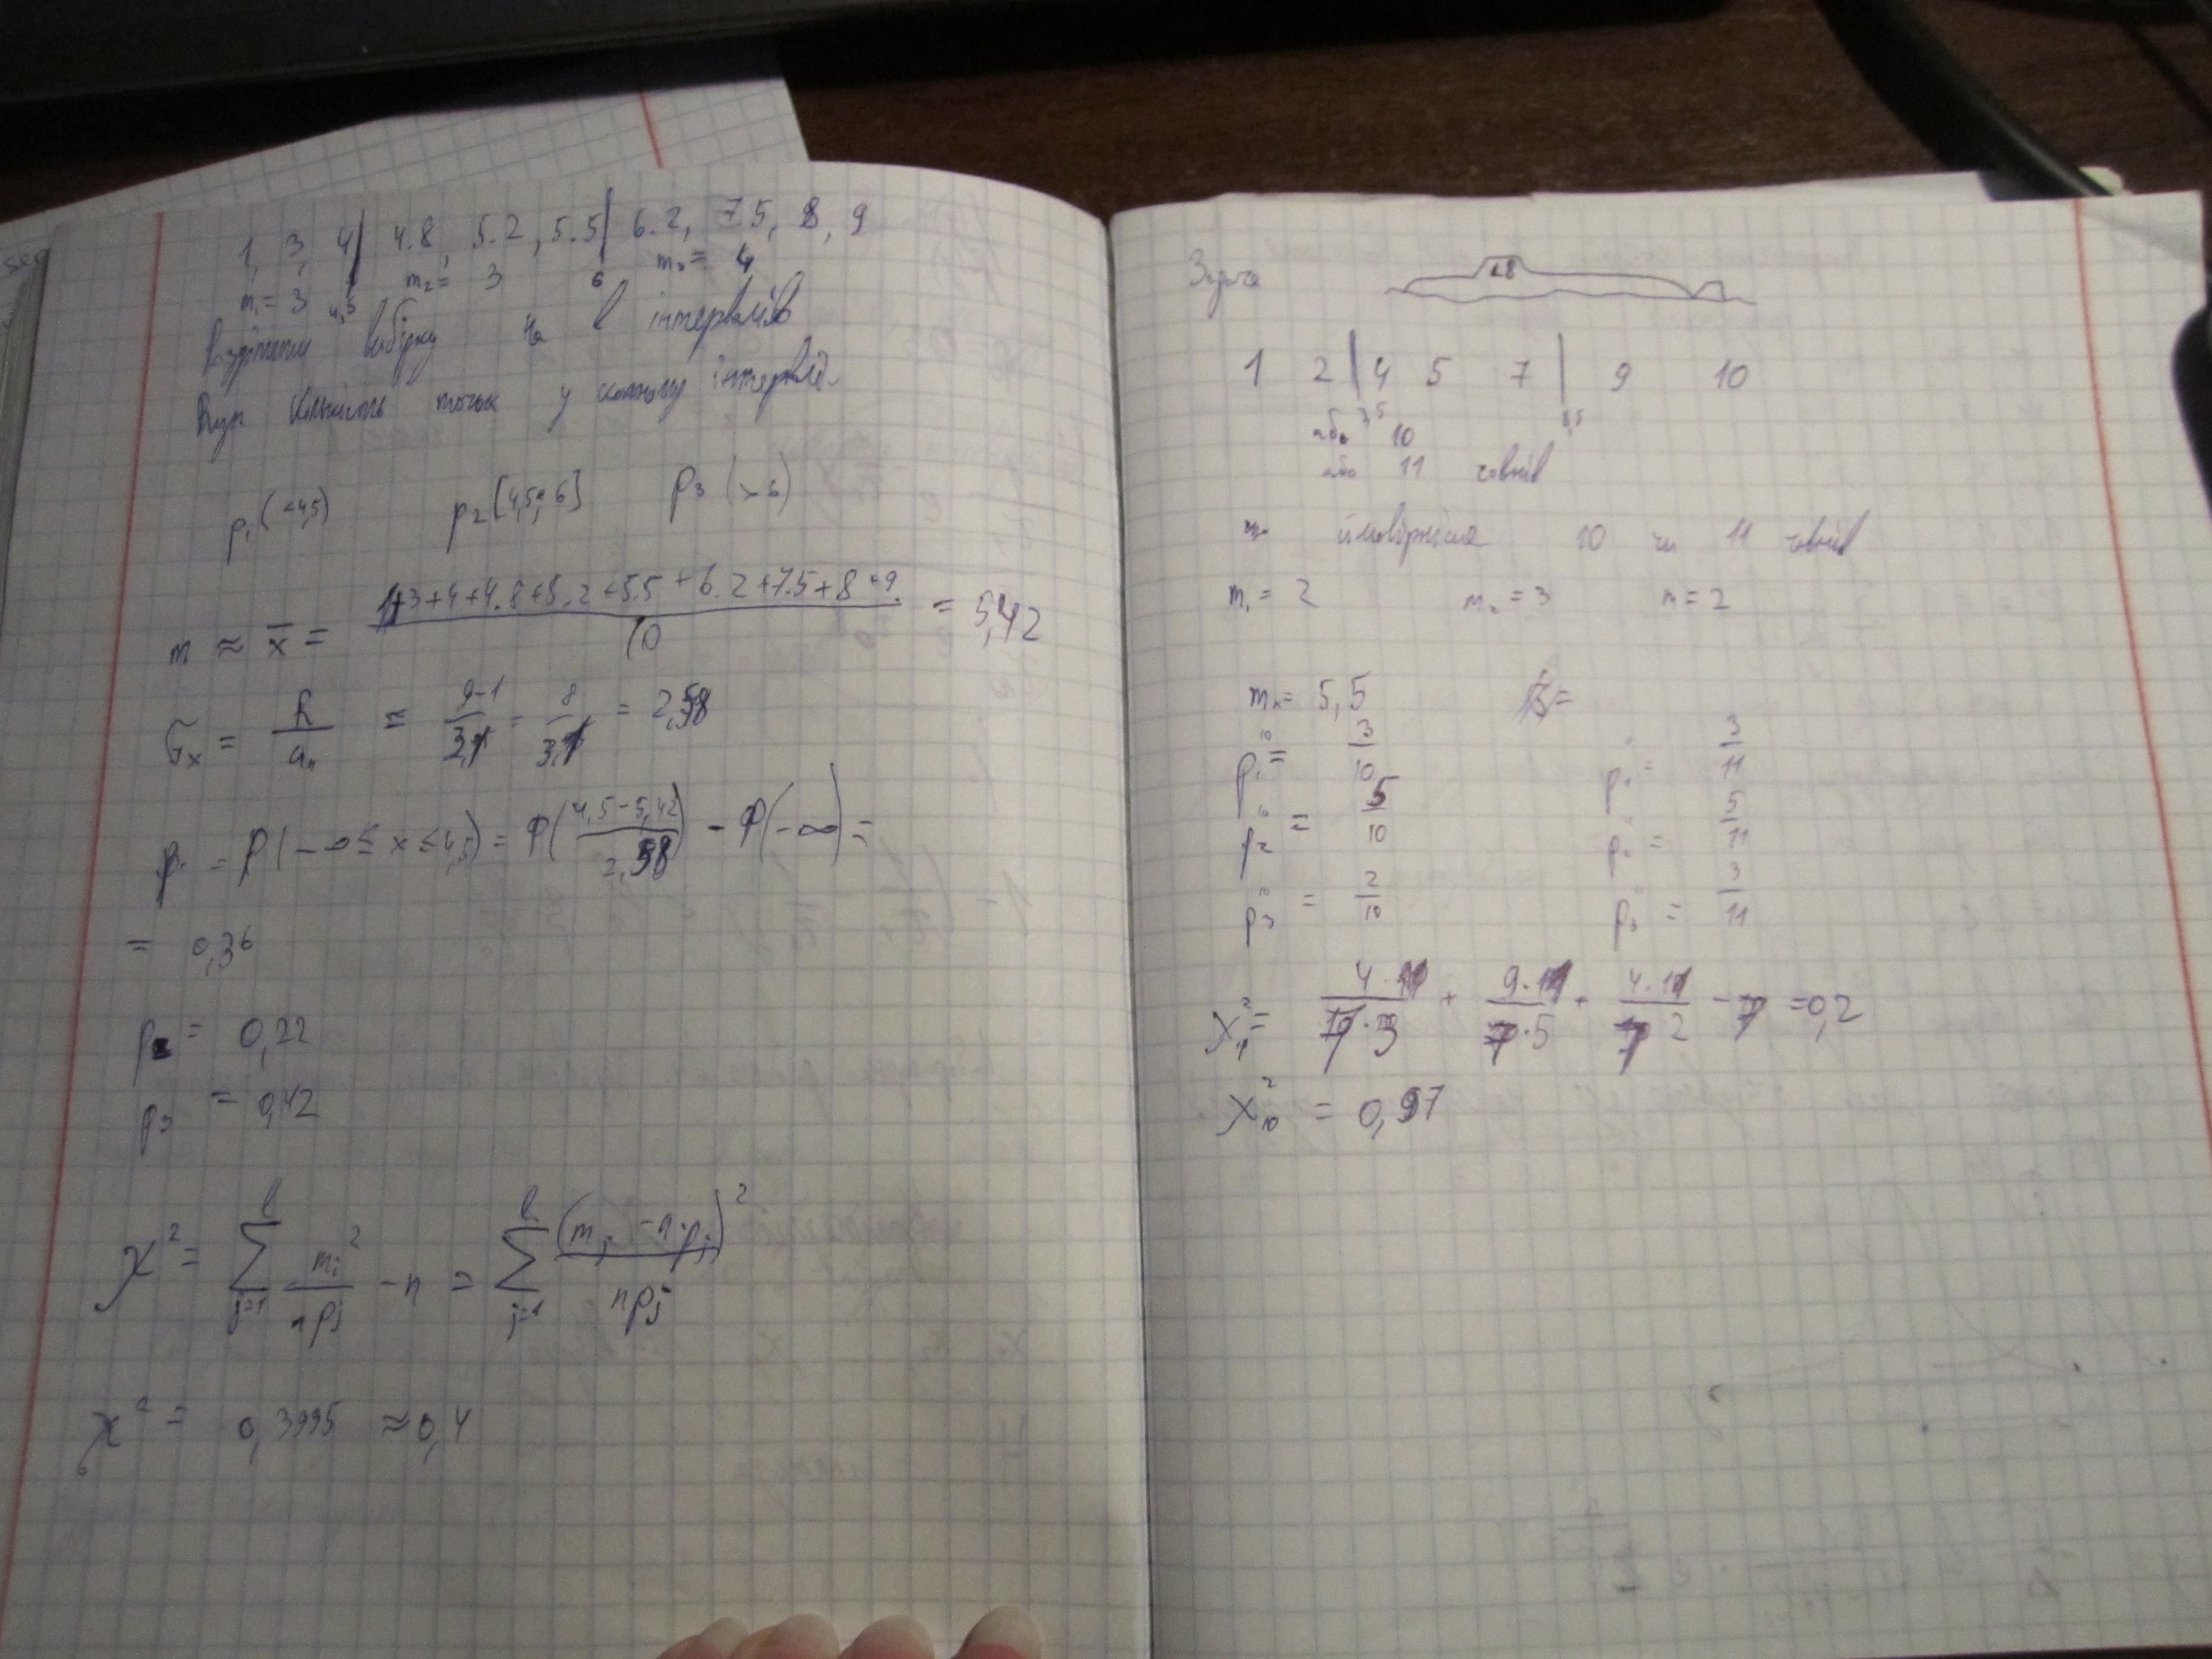 1, 3, 4 | 4.8, 5.2, 5.5 | 6.2, 7.5, 8, 9
m₁ = 3 4,5 m₂ = 3 6 m₃ = 4
вибірку на l інтервалів
кількість точок у кожному інтервалі
p₁(<4,5) p₂[4,5; 6] p₃(>6)
m ≈ x̄ = (1+3+4+4.8+5.2+5.5+6.2+7.5+8+9)/10 = 5,42
σₓ = R/aₙ = (9-1)/3,1 = 8/3,1 = 2,58
p₁ = P(-∞ ≤ x ≤ 4,5) = Φ((4,5-5,42)/2,58) - Φ(-∞) =
= 0,36
p₂ = 0,22
p₃ = 0,42
χ² = Σ_{j=1}^{l} mⱼ²/(npⱼ) - n = Σ_{j=1}^{l} (mⱼ - n·pⱼ)²/(npⱼ)
χ² = 0,3995 ≈ 0,4
Задача
1 2 | 4 5 7 | 9 10
3,5 8,5
або 10
або 11 човнів
що ймовірніше 10 чи 11 човнів
m₁ = 2 m₂ = 3 m = 2
mₓ = 5,5
p₁¹⁰ = 3/10 p₁ = 3/11
p₂¹⁰ = 5/10 p₂ = 5/11
p₃¹⁰ = 2/10 p₃ = 3/11
χ²₁₁ = + + - 7 = 0,2
χ²₁₀ = 0,97